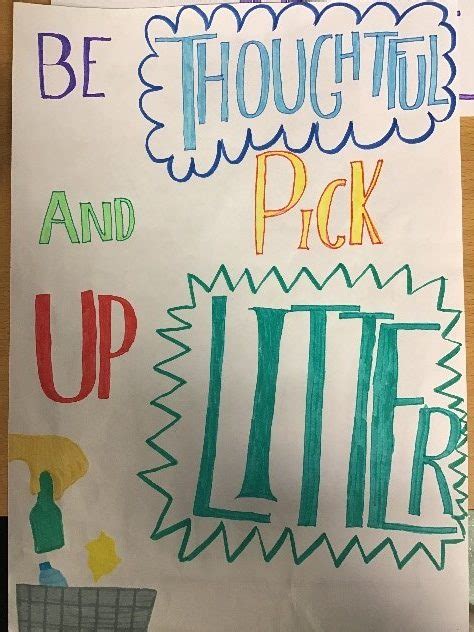 BE THOUGHTFUL
AND PICK
UP LITTER